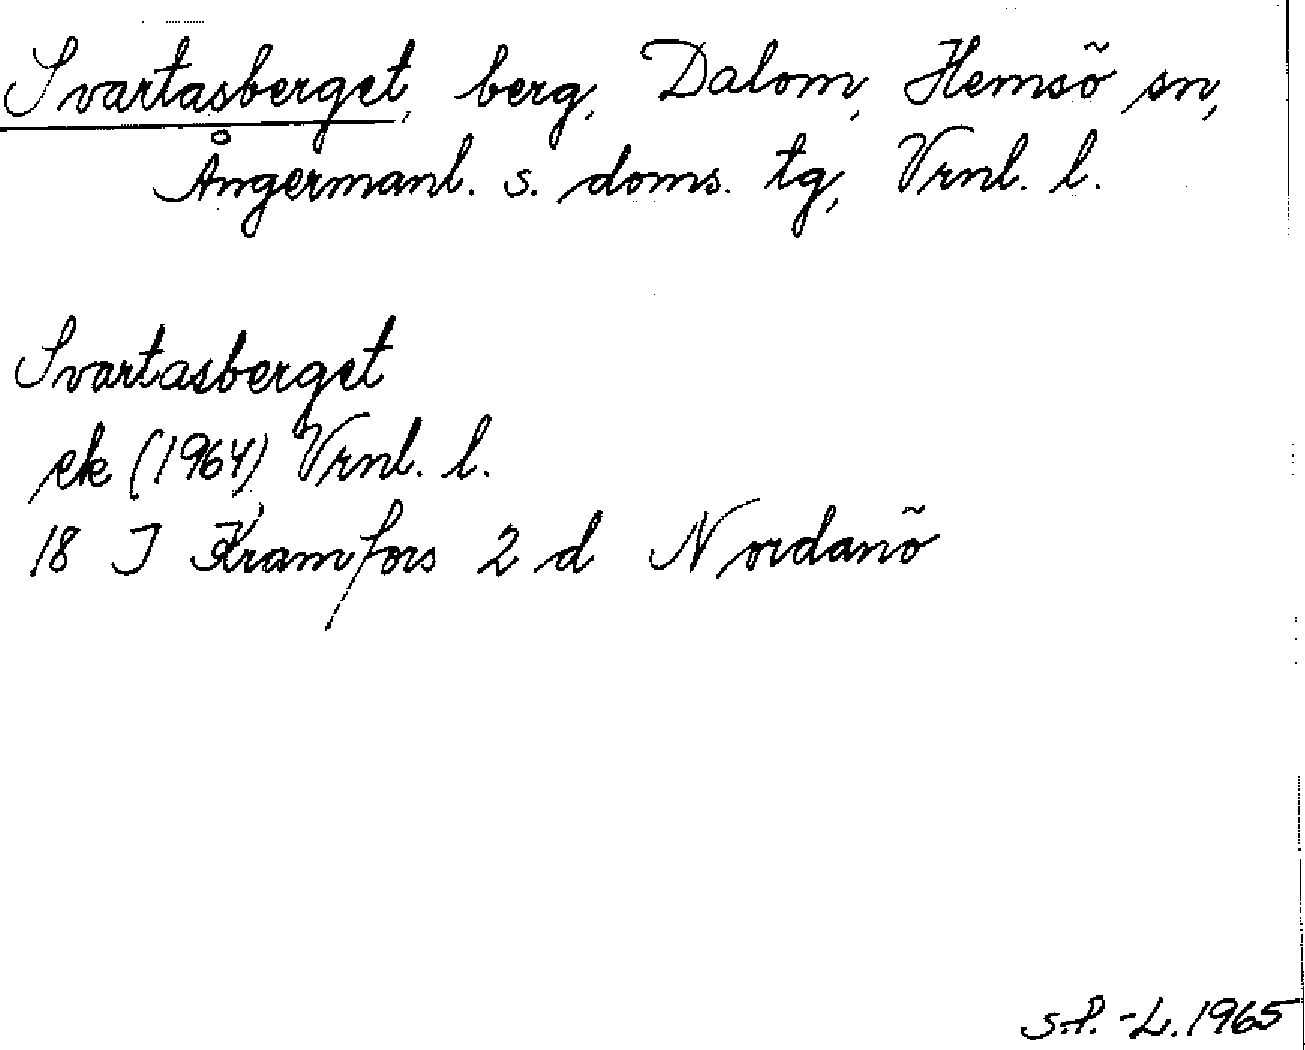 Svartasberget, berg, Dalom, Hemsö sn,
Ångermanl. s. doms. tg, Vrnl. l.
Svartasberget
ek (1964) Vrnl. l.
18 J Kramfors 2 d Nordanö
S.P. -L. 1965